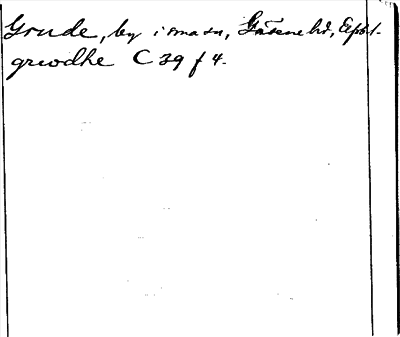 Grude, by i sma sn, Gäsene hd, Älfsb l.
griodhe C 39 f 4.